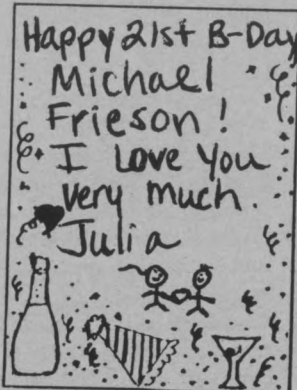 Happy 21st B-Day
Michael
Frieson!
I Love You
very much.
Julia